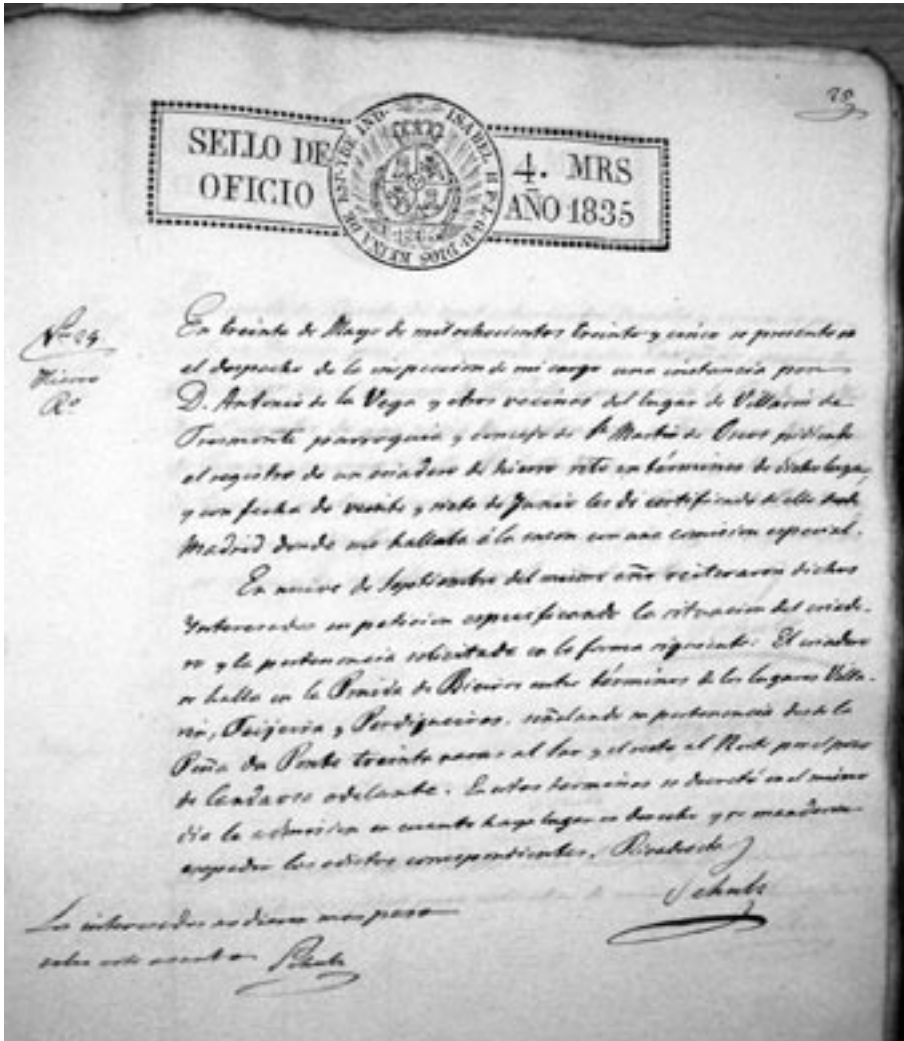 SELLO DE OFICIO
ISABEL II P. L. G. D. DIOS REINA DE ESP. Y DE IND.
4. MRS
AÑO 1835
Hierro
Rº
En treinta de Mayo de mil ochocientos treinta y cinco se presentó en
el despacho de la inspeccion de mi cargo una instancia por
D. Antonio de la Vega y otros vecinos del lugar de Villarin de
Trasmonte parroquia y concejo de Sn Martin de Oscos pidiendo
el registro de un criadero de hierro sito en términos de dicho lugar,
y con fecha de veinte y siete de Junio les dí certificado de ello desde
Madrid donde me hallaba á la sazon con una comision especial.
En nueve de Septiembre del mismo año reiteraron dichos
Interesados su peticion especificando la situacion del criade-
ro y la pertenencia solicitada en la forma siguiente: El criadero
se halla en la de entre términos de los lugares Villa-
rin, Teijeira y Perdigueiros, señalando su pertenencia desde la
Peña da Ponte treinta varas al Sur y el resto al Norte por el pozo
de adelante. En estos terminos se decretó en el mismo
dia la admision en cuanto haya lugar en derecho y se mandaron
expedir los edictos correspondientes. Rivadeo
Schulz
Los interesados no dieron mas paso
sobre este asunto Schulz